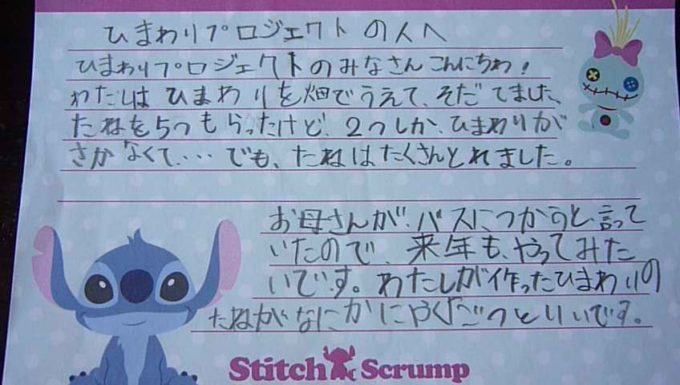 ひまわりプロジェクトの人へ
ひまわりプロジェクトのみなさんこんにちわ!
わたしはひまわりを畑でうえて、そだてました、
たねを5つもらったけど、2つしか、ひまわりが
さかなくて、・・・でも、たねはたくさんとれました。
お母さんが、バスにつかうと、言って
いたので、来年も、やってみた
いです。わたしが作ったひまわりの
たねがなにかにやくだつといいです。
Stitch Scrump